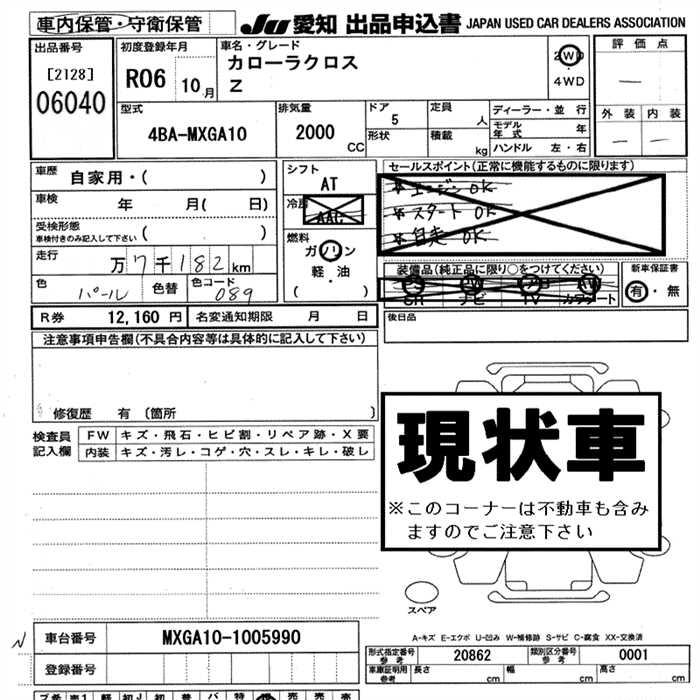 車内保管・守衛保管
JU 愛知 出品申込書 JAPAN USED CAR DEALERS ASSOCIATION
出品番号
[2128]
06040
初度登録年月
R06 10月
車名・グレード
カローラクロス
Z
2WD
・
4WD
評価点
—
外装 内装
— —
型式
4BA-MXGA10
排気量
2000
CC
ドア
5
形状
定員
人
積載
kg
ディーラー・並行
モデル年式 年
ハンドル 左・右
車歴 自家用・( )
車検 年 月( 日)
受検形態
車検付きのみ記入して下さい ( )
走行 万7千182km
色 パール 色替 色コード 089
シフト
AT
冷房
AAC
燃料
ガソリン
軽・油
( )
セールスポイント(正常に機能するものに限ります)
* エンジン OK
* スタート OK
* 自走 OK
装備品(純正品に限り○をつけてください)
SR ナビ TV カワシート
新車保証書
有・無
後日品
R券 12,160円 名変通知期限 月 日
注意事項申告欄(不具合内容等は具体的に記入して下さい)
修復歴 有 〔箇所 〕
検査員記入欄
FW キズ・飛石・ヒビ割・リペア跡・X要
内装 キズ・汚レ・コゲ・穴・スレ・キレ・破レ
現状車
※このコーナーは不動車も含み
ますのでご注意下さい
スペア
A-キズ E-エクボ U-凹み W-補修跡 S-サビ C-腐食 XX-交換済
N 車台番号 MXGA10-1005990
登録番号
形式指定番号
参考
20862
類別区分番号
参考
0001
車庫証明用
参考
長さ cm 幅 cm 高さ cm